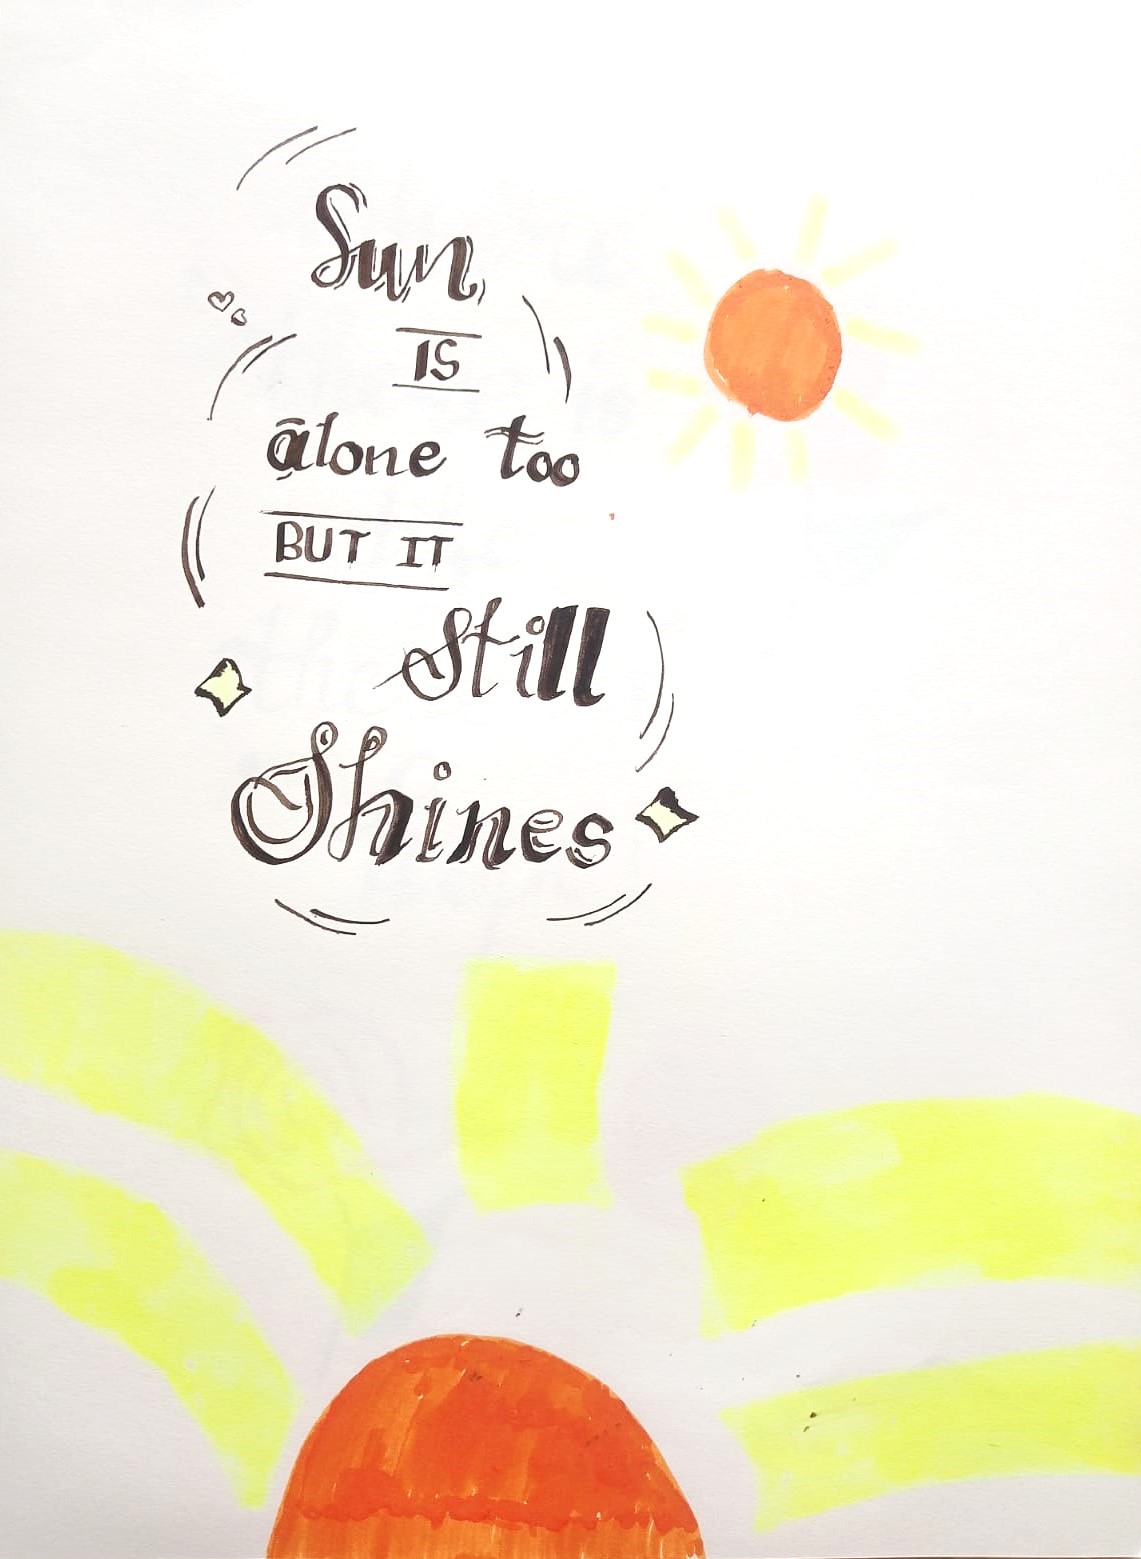 Sun
IS
alone too
BUT IT
Still
Shines